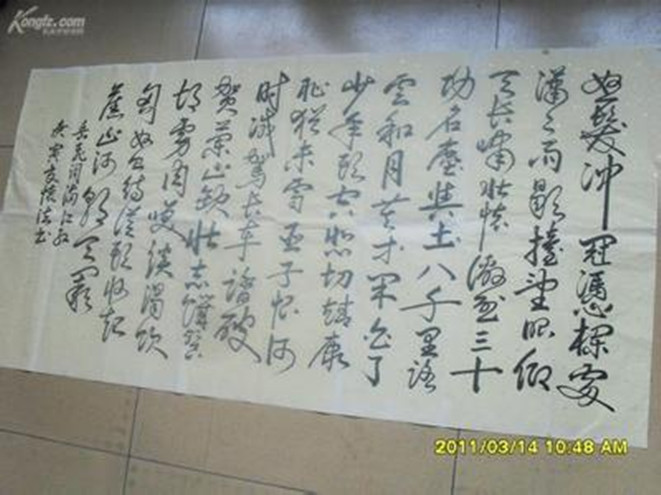 怒髮冲冠憑欄處
潇々雨歇擡望眼仰
天长啸壮懷激烈三十
功名塵與土八千里路
云和月莫等闲白了
少年头空悲切靖康
耻犹未雪臣子恨何
时灭驾长车踏破
贺兰山缺壮志饥餐
胡虏肉笑谈渴饮
匈奴血待从头收拾
旧山河朝天阙
岳飞词满江红
庚寅夏
Kongfz.com
2011/03/14 10:48 AM